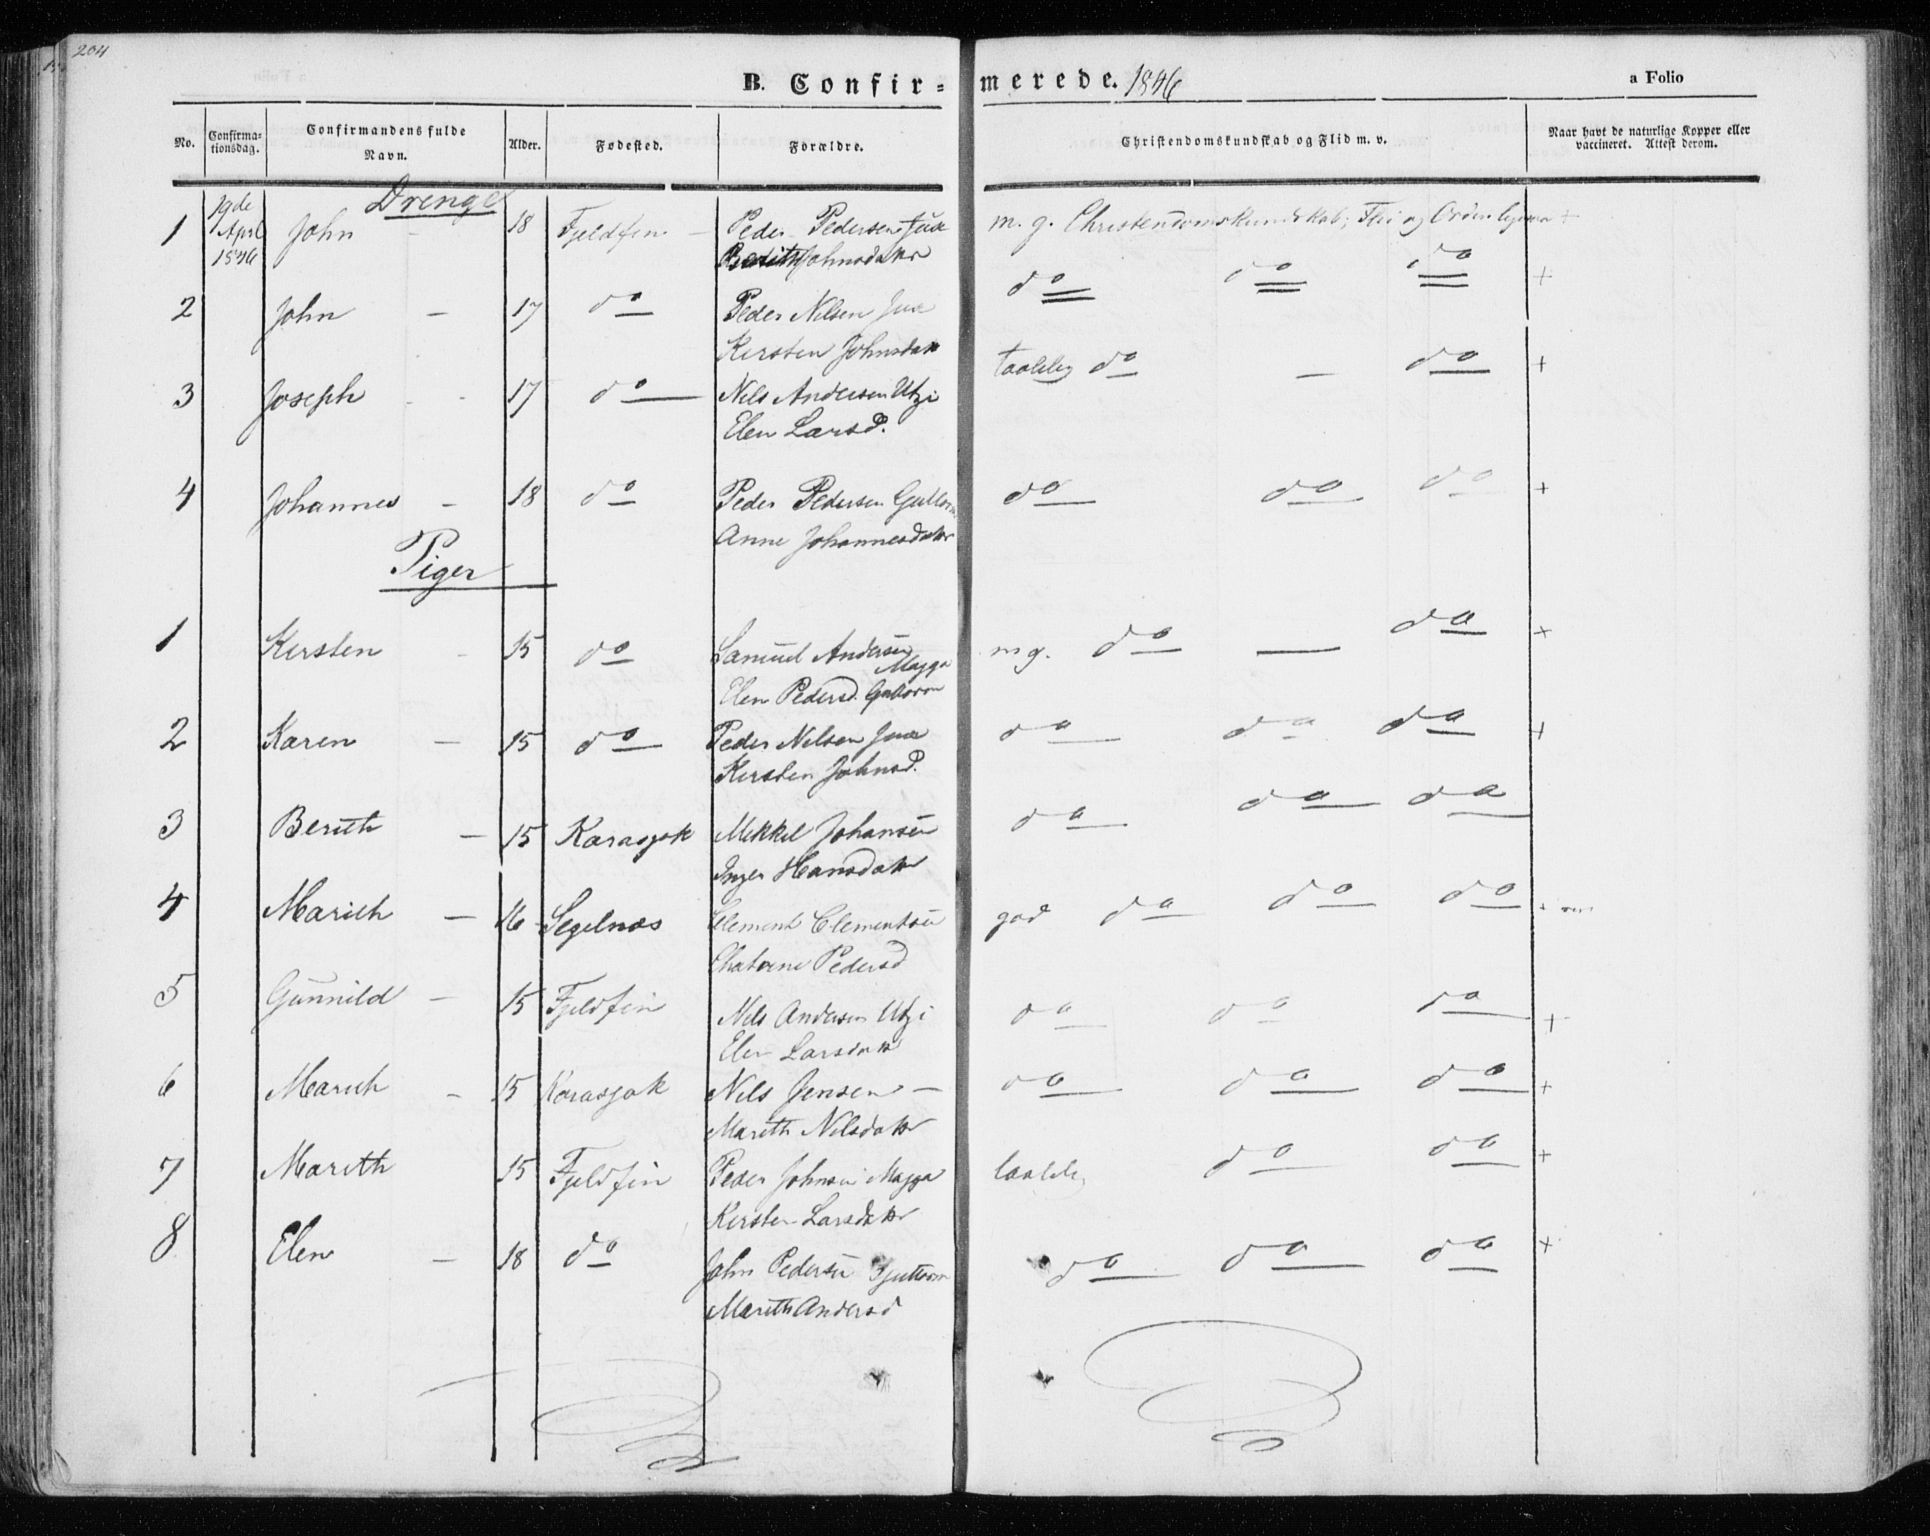 204
B. Confir= merede. 1846
a Folio
No. Confirma-tionsdag. Confirmandens fulde Navn. Alder. Fødested. Forældre. Christendomskundskab og Flid m. v. Naar havt de naturlige Kopper eller vaccineret. Attest derom.
Drenge
1 19de April 1846 John - 18 Fjeldfin - Peder Pedersen Juxe m. g. Christendomskundskab; Flid og +
Berith Johnsdatr
2 John - 17 do Peder Nilsen Juxe do do do +
Kersten Johnsdatr
3 Joseph - - 17 do Nils Andersen Utzi taalelig do - do +
Elen Larsd.
4 Johannes - 18 do Peder Pedersen Guttorm do do do +
Anne Johannesdatr
Piger
1 Kersten - 15 do Samuel Andersen Magga mg. do - do +
Elen Pedersd. Guttorm
2 Karen - 15 do Peder Nilsen Juxe do do do +
Kersten Johnsd.
3 Berith - 15 Karasjok Mikkel Johansen do do do
Inger Hansdatr
4 Marith - 16 Segelnæs Clement Clementsen god do do do +
Chatrine Pedersd
5 Gunnild - 15 Fjeldfin Nils Andersen Utzi do do do +
Elen Larsdatr
6 Marith - 15 Karasjok Nils Jensen - do do do +
Marith Nilsdatr
7 Marith 15 Fjeldfin Peder Johnsen Magga taalelig do do +
Kersten Larsdatr
8 Elen - 18 do John Pedersen Guttorm do do do +
Marith Andersd